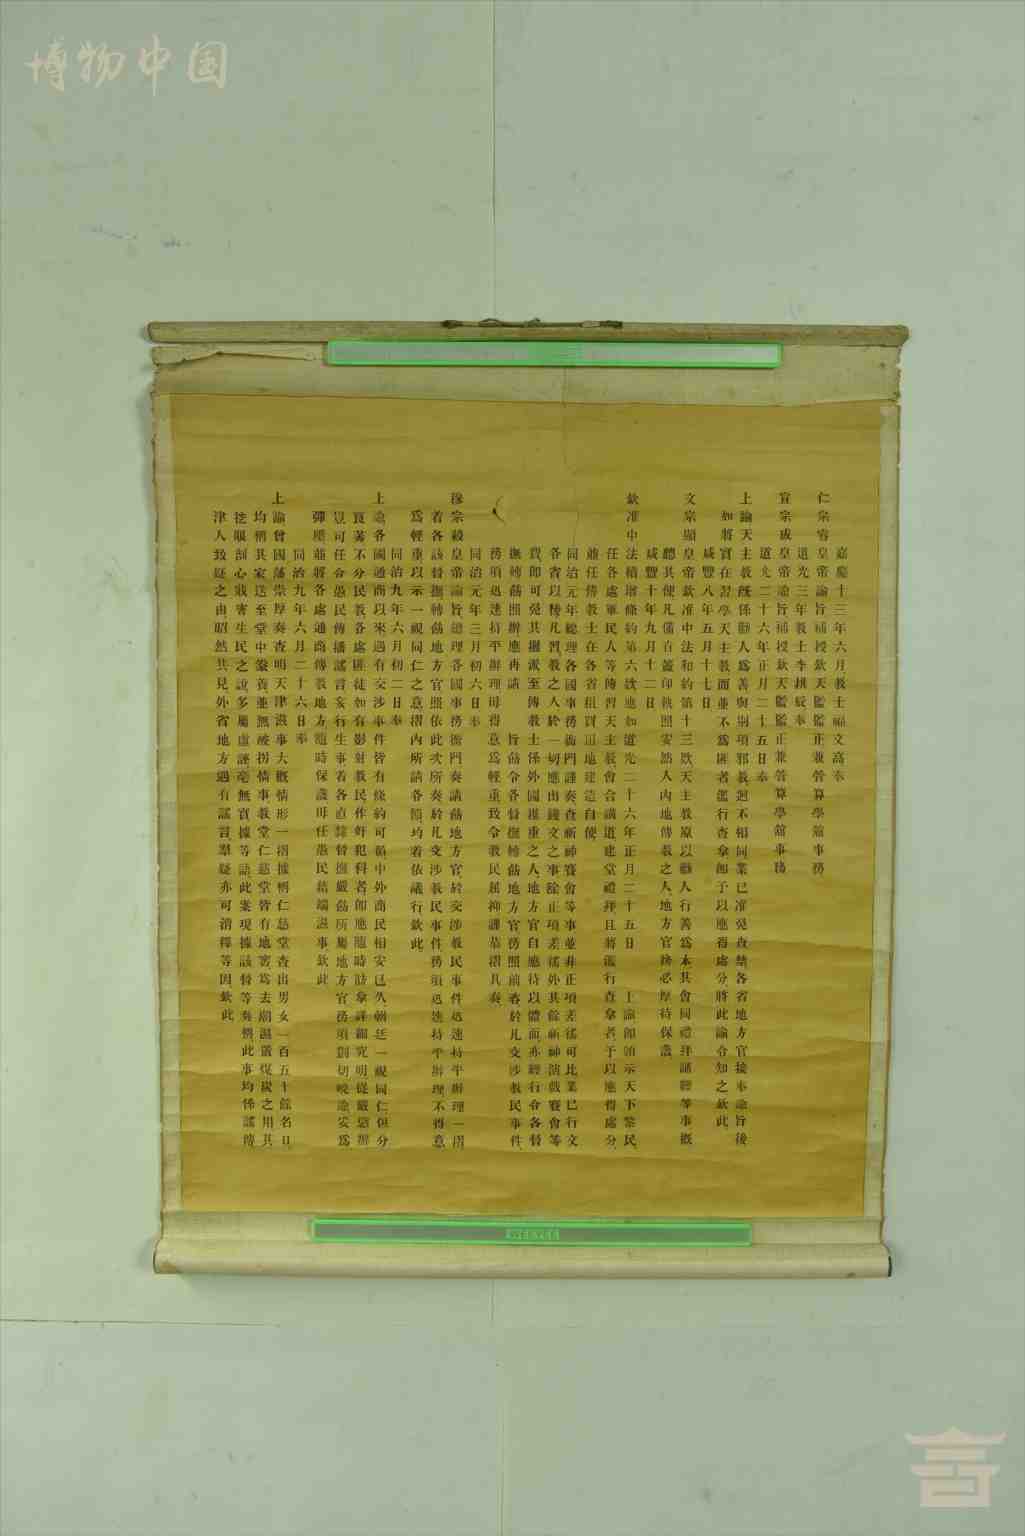 博物中国
嘉慶十三年六月教士福文高奉
仁宗睿皇帝諭旨補授欽天監監正兼管算學舘事務
道光三年教士李拱辰奉
宣宗成皇帝諭旨補授欽天監監正兼管算學舘事務
道光二十六年正月二十五日奉
上諭天主教既係勸人為善與別項邪教迥不相同業已准免查禁各省地方官接奉諭旨後
如將實在習學天主教而並不為匪者濫行查拿即予以應得處分將此諭令知之欽此
咸豐八年五月十七日
文宗顯皇帝欽准中法和約第十三欵天主教原以勸人行善為本其會同禮拜誦經等事概
聽其便凡備有蓋印執照安然入內地傳教之人地方官務必厚待保護
咸豐十年九月十二日
欽准中法續增條約第六欵應如道光二十六年正月二十五日 上諭即頒示天下黎民
任各處軍民人等傳習天主教會合講道建堂禮拜且將濫行查拿者予以應得處分
並任傳教士在各省租買田地建造自便
同治元年總理各國事務衙門謹奏查祈神賽會等事並非正項差徭可比業已行文
各省以後凡習教之人於一切應出錢文之事除正項差徭外其餘祈神演戲賽會等
費即可免其攤派至傳教士係外國推重之人地方官自應待以體面亦經行令各督
撫轉飭照辦應再請 旨飭令各督撫轉飭地方官務照前咨於凡交涉教民事件
務須迅速持平辦理毋得意為輕重致令教民屈抑謹恭摺具奏
同治元年三月初六日奉
穆宗毅皇帝諭旨總理各國事務衙門奏請飭地方官於交涉教民事件迅速持平辦理一摺
着各該督撫轉飭地方官照依此次所奏於凡交涉教民事件務須迅速持平辦理不得意
為輕重以示一視同仁之意摺內所請各節均着依議行欽此
同治九年六月初二日奉
上諭各國通商以來遇有交涉事件皆有條約可循中外商民相安已久朝廷一視同仁但分
良莠不分民教各處匪徒如有影射教民作奸犯科者即應隨時訪拿詳細究明從嚴懲辦
豈可任令愚民傳播謠言妄行生事着各直隸督撫嚴飭所屬地方官務須剴切曉諭妥為
彈壓並將各處通商傳教地方隨時保護毋任愚民藉端滋事欽此
同治九年六月二十六日奉
上諭曾國藩崇厚奏查明天津滋事大概情形一摺據稱仁慈堂查出男女一百五十餘名口
均稱其家送至堂中豢養並無被拐情事教堂仁慈堂皆有地窖為去潮濕置煤炭之用其
挖眼剖心戕害生民之說多屬虛誣毫無實據等語此案現據該督等奏稱此事均係謠傳
津人致疑之由昭然共見外省地方遇有謠言羣疑亦可消釋等因欽此